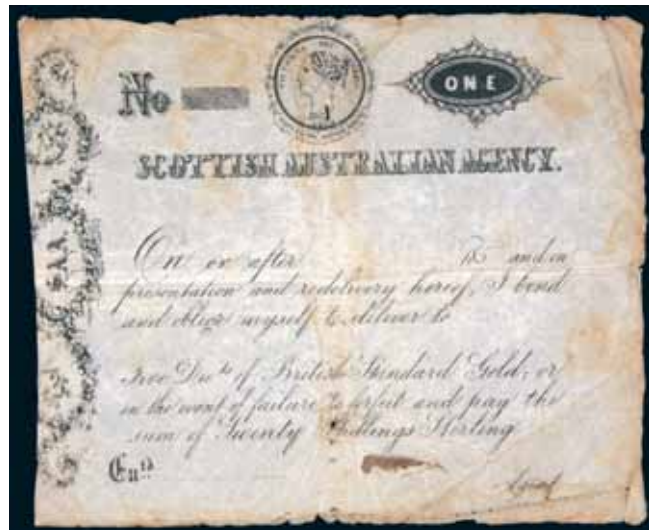 No
ONE
SCOTTISH AUSTRALIAN AGENCY.
S.A.A.
On or after 18 and on
presentation and redelivery hereof, I bind
and oblige myself to deliver to
Five Dwts of British Standard Gold, or
in the event of failure to forfeit and pay the
sum of Twenty Shillings Sterling
Entd
Agent